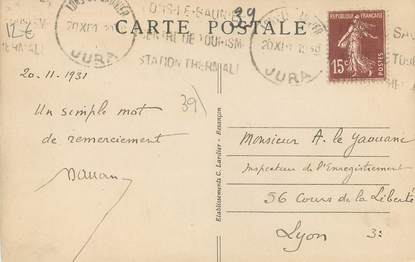 CARTE POSTALE
39
12€
LONS-LE-SAUNIER
CENTRE DE TOURISME
STATION THERMALE
JURA
JURA
RÉPUBLIQUE FRANÇAISE
15c
POSTES
20.11.1931
39)
Un simple mot
de remerciement
Etablissements C. Lardier - Besançon
Monsieur A. le Yaouanc
Inspecteur de l'Enregistrement
56 Cours de la Liberté
Lyon 3: